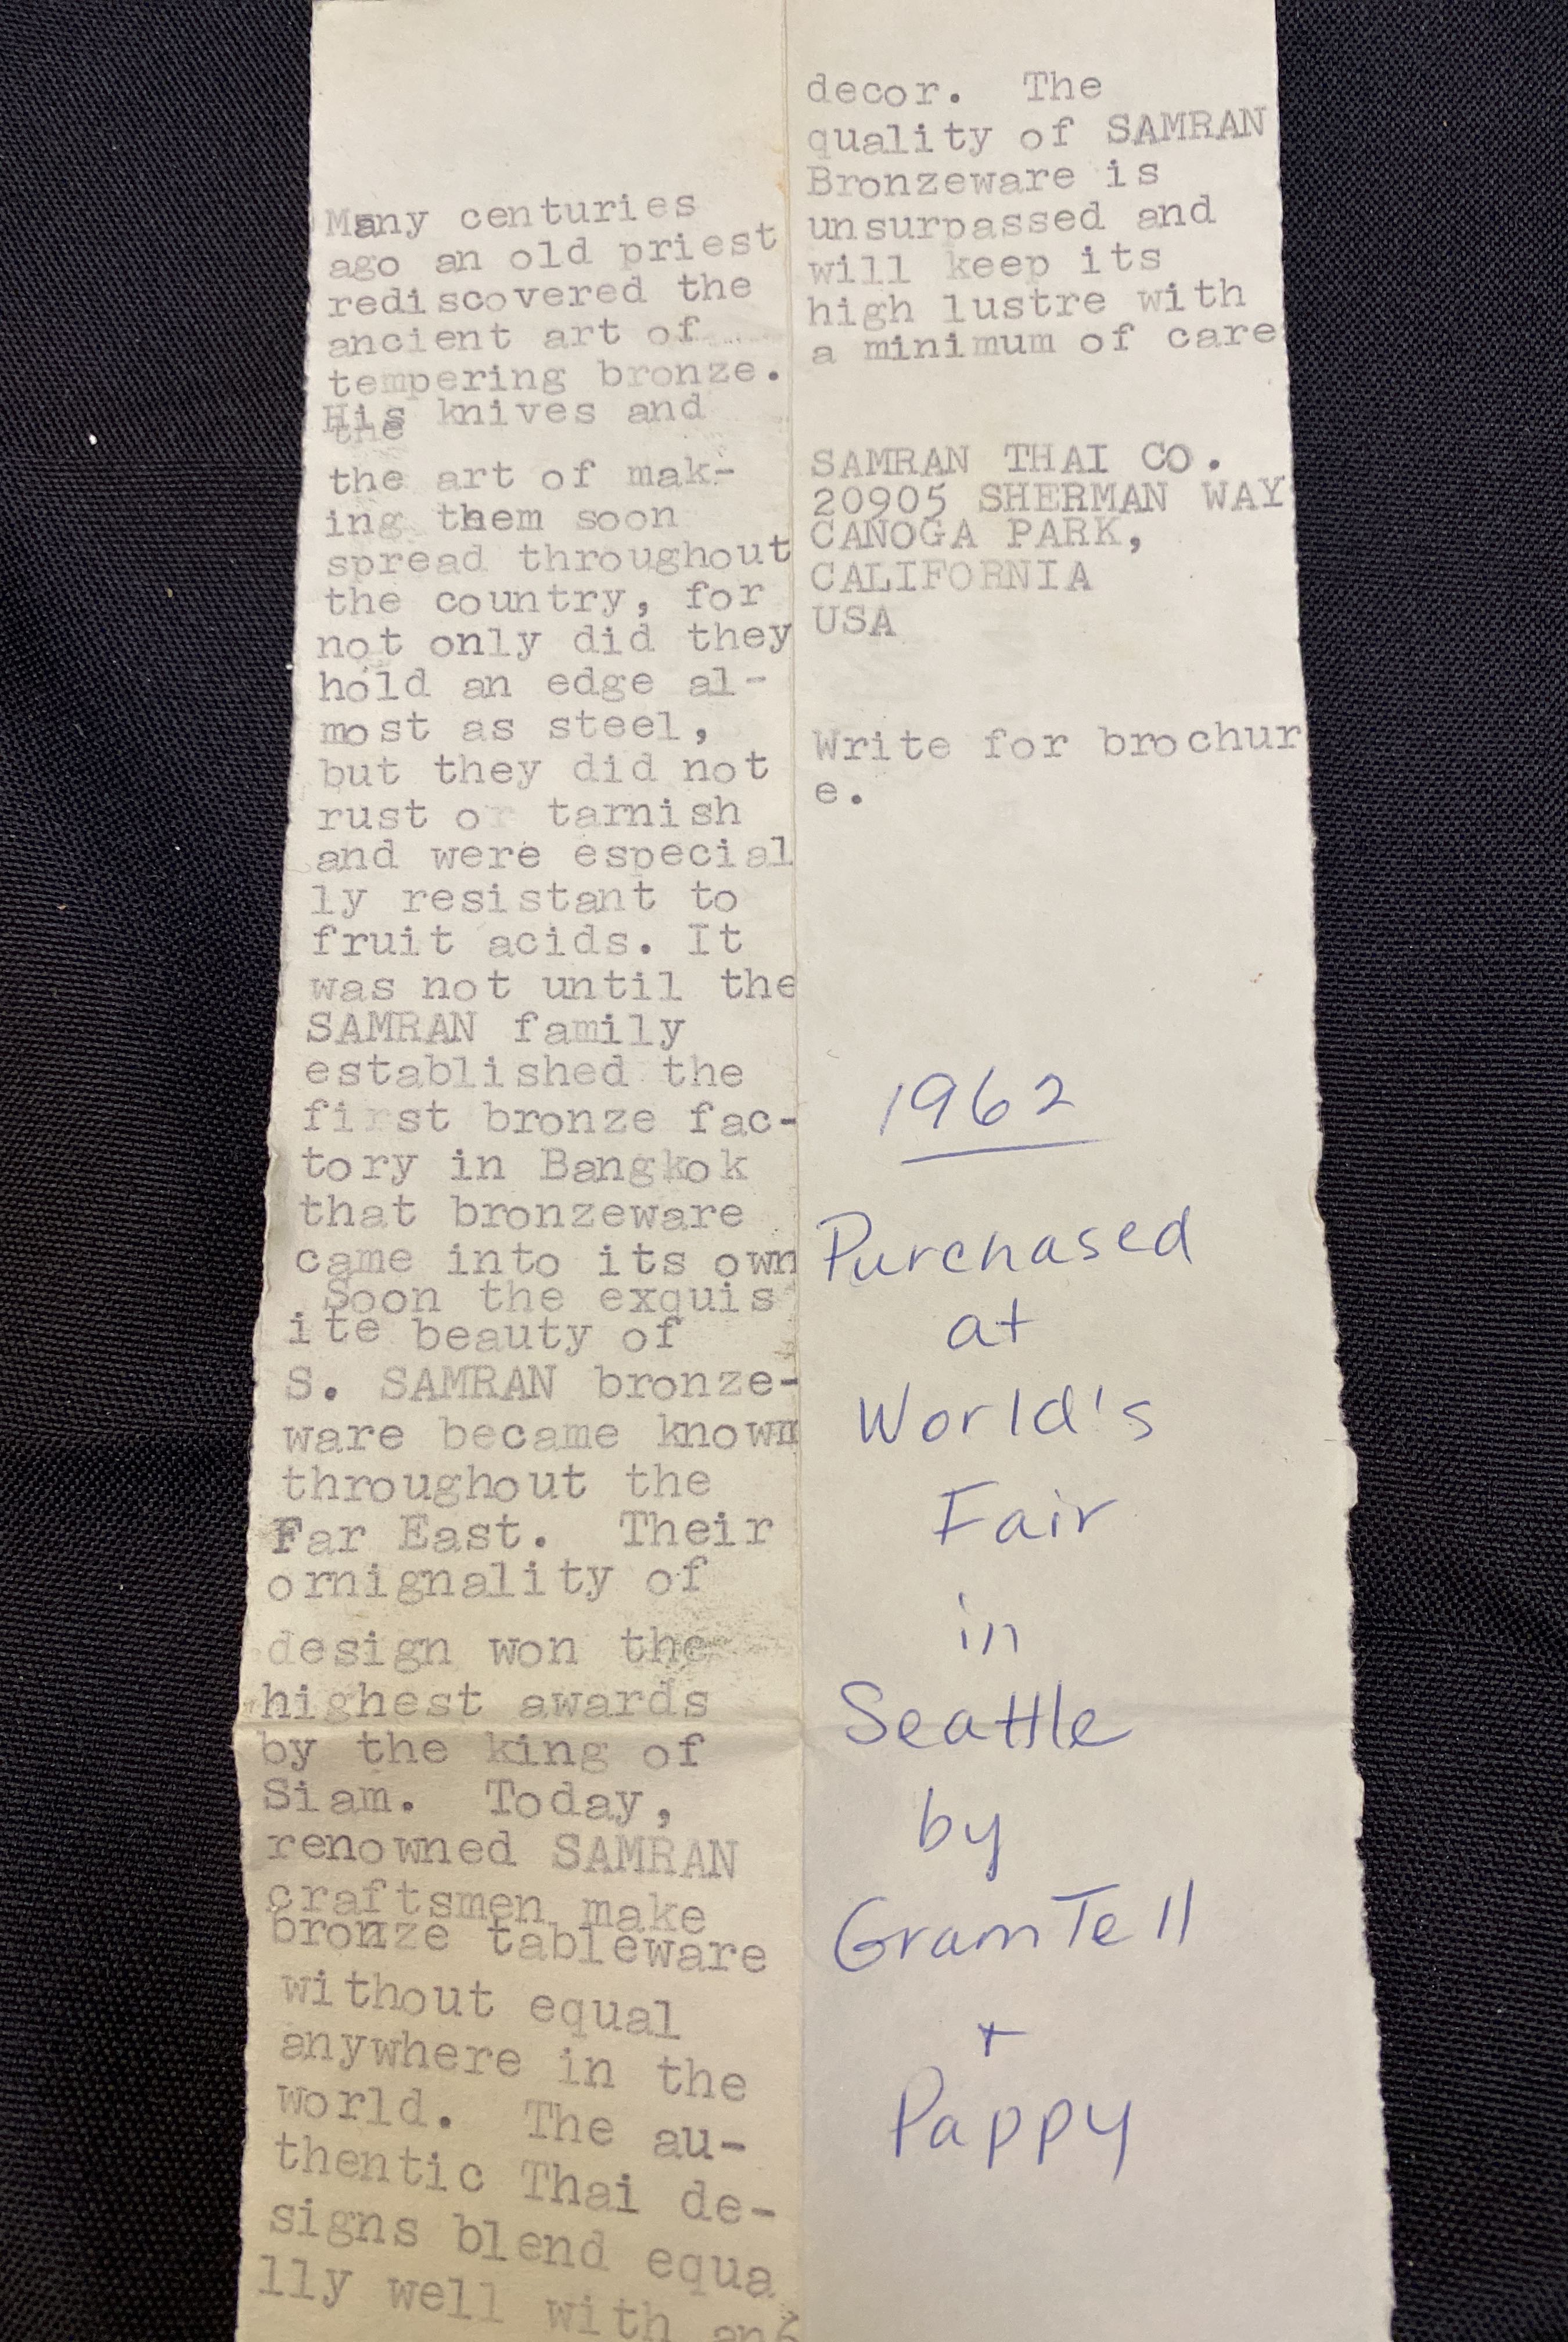 Many centuries
ago an old priest
rediscovered the
ancient art of
tempering bronze.
His knives and
the
the art of mak-
ing them soon
spread throughout
the country, for
not only did they
hold an edge al-
most as steel,
but they did not
rust or tarnish
and were especial
ly resistant to
fruit acids. It
was not until the
SAMRAN family
established the
first bronze fac-
tory in Bangkok
that bronzeware
came into its own
. Soon the exquis
ite beauty of
S. SAMRAN bronze-
ware became known
throughout the
Far East. Their
ornignality of
design won the
highest awards
by the king of
Siam. Today,
renowned SAMRAN
craftsmen make
bronze tableware
without equal
anywhere in the
world. The au-
thentic Thai de-
signs blend equa
lly well with
decor. The
quality of SAMRAN
Bronzeware is
unsurpassed and
will keep its
high lustre with
a minimum of care
SAMRAN THAI CO.
20905 SHERMAN WAY
CANOGA PARK,
CALIFORNIA
USA
Write for brochur
e.
1962
Purchased
at
World's
Fair
in
Seattle
by
GramTell
+
Pappy